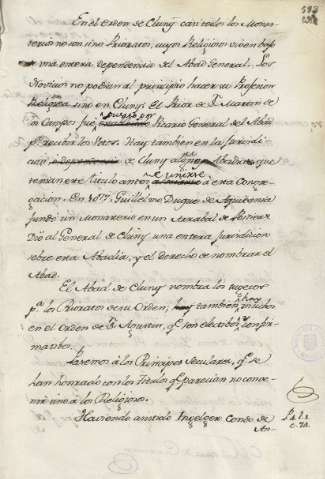 En el orden de Cluny casi todos los Monas-
terios no son sino Prioratos, cuyos Religiosos viven bajo
una entera dependencia del Abad General. Los
Novicios no podian al principio hacer su Profesion
Religiosa sino en Cluny. El Prior de Sn. Martin de
los Campos fué Vicario General del Abad
pa. recibir los Votos. Hay tambien en la Jurisdi-
cion de Cluny algunas Abadias que
tenian este titulo antes de unirse á esta Congre-
gacion. En 1077 Guillelmo Duque de Aquitania
fundó un Monasterio en un Arrabal de Poitiers
Dió al General de Cluny una entera jurisdicion
sobre esta Abadia, y el derecho de nombrar el
Abad.
El Abad de Cluny nombra los sugetos
pa. los Prioratos de su Orden, tambien
en el Orden de Sn. Agustin, qe. son electivos, confir-
mativos.
Pasemos á los Principes Seculares, qe. se
han honrado con los Titulos qe. parecian no conve-
nir sino á los Religiosos.
Haviendo muerto Ingelger Conde de
An-